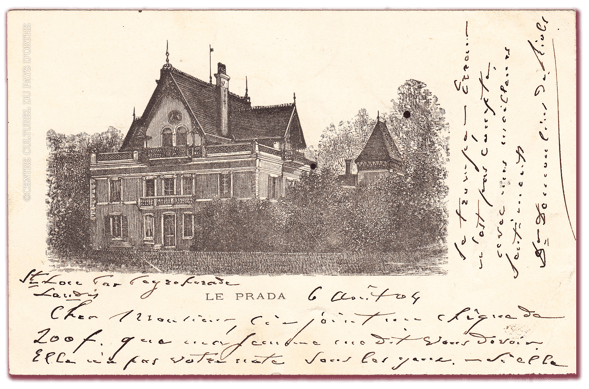 ©CENTRE CULTUREL DU PAYS D'ORTHE
LE PRADA
St Lon par Peyrehorade
Landes
6 Août 04
Cher Monsieur, ci-joint un chèque de
200f. que ma femme me dit vous devoir.
Elle n'a pas votre note sous les yeux. - si elle
se trompe - Erreur
n'est pas compte
avec mes meilleurs
sentiments